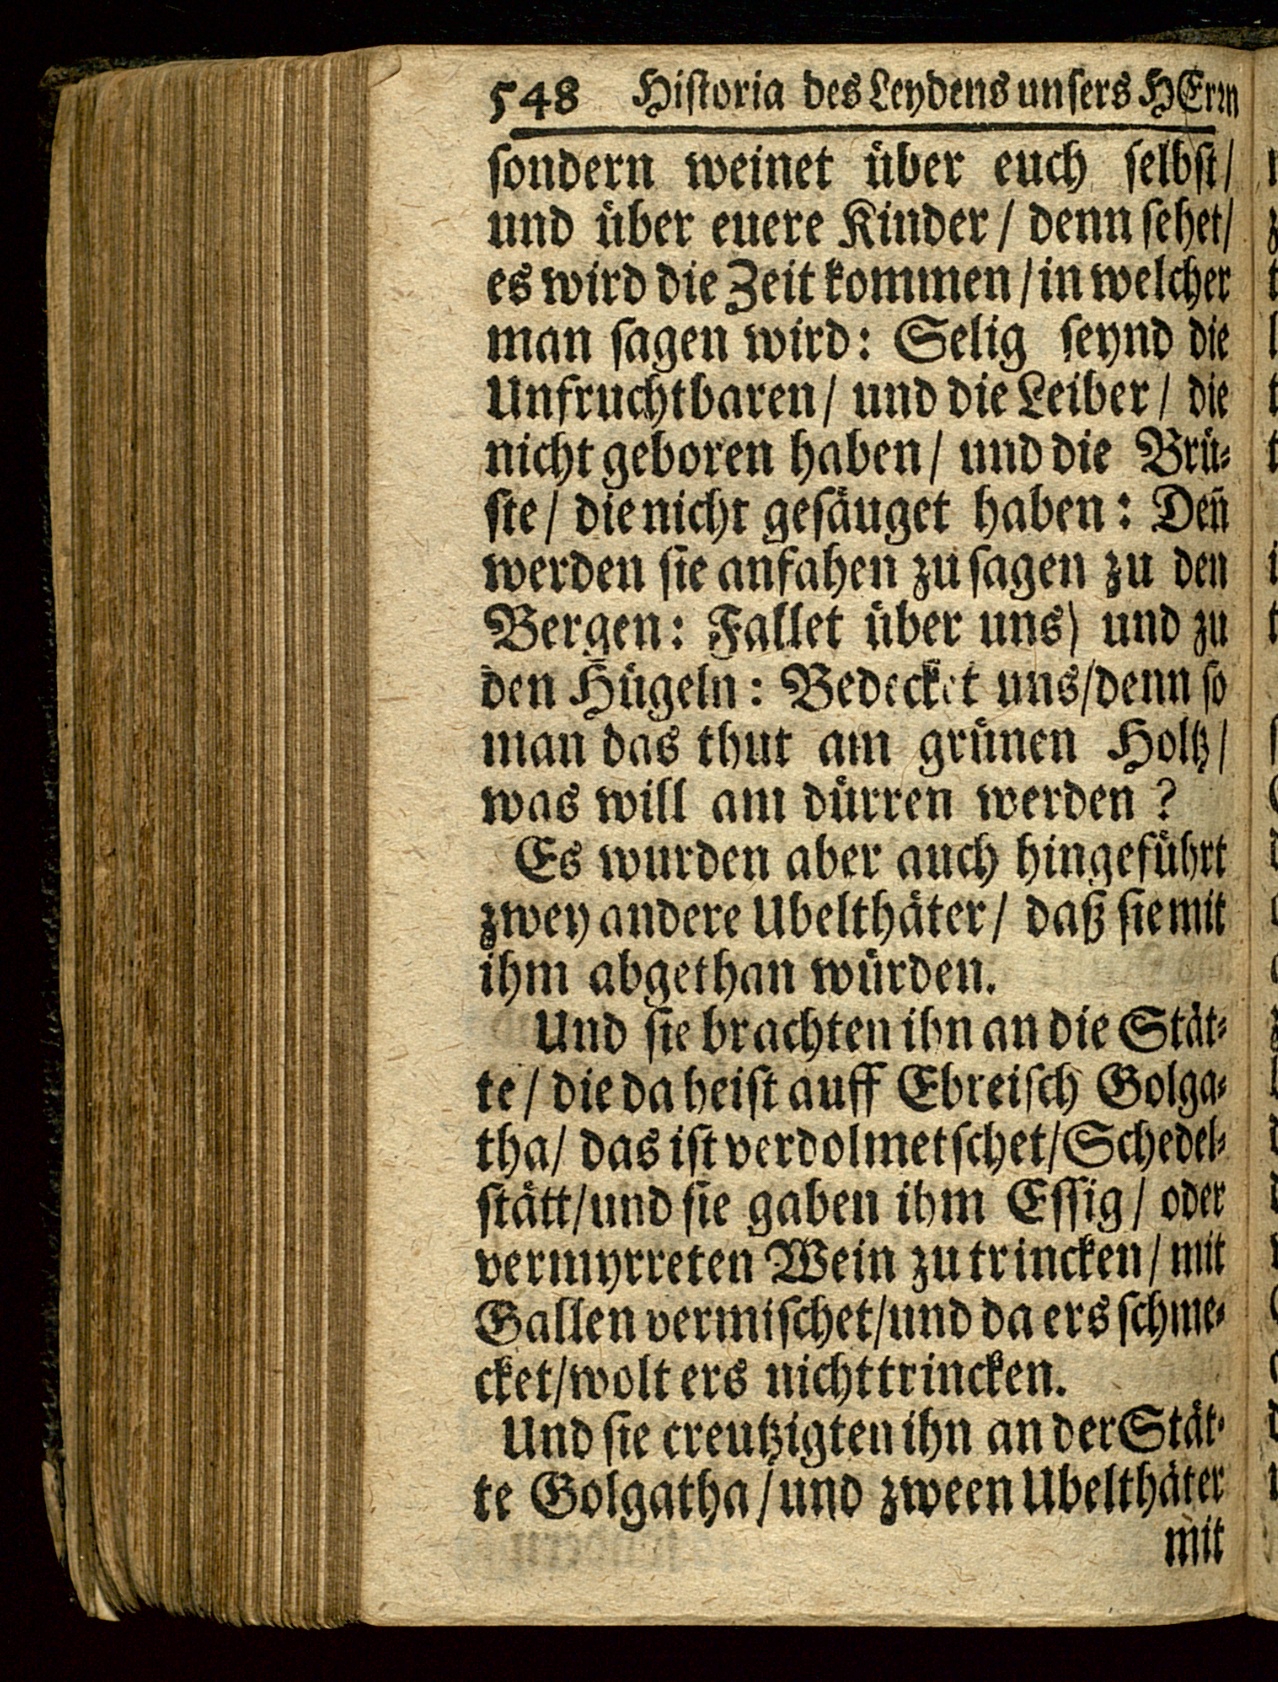 548 Hiſtoria des Leydens unſers HErꝛn
ſondern weinet uͤber euch ſelbſt/
und uͤber euere Kinder / denn ſehet/
es wird die Zeit kommen / in welcher
man ſagen wird: Selig ſeynd die
Unfruchtbaren / und die Leiber / die
nicht geboren haben / und die Bruͤ⸗
ſte / die nicht geſaͤuget haben: Deñ
werden ſie anfahen zu ſagen zu den
Bergen: Fallet uͤber uns) und zu
den Huͤgeln: Bedecket uns/denn ſo
man das thut am gruͤnen Holtz /
was will am duͤrren werden ?
Es wurden aber auch hingefuͤhrt
zwey andere Ubelthaͤter / daß ſie mit
ihm abgethan wuͤrden.
Und ſie brachten ihn an die Staͤt⸗
te / die da heiſt auff Ebreiſch Golga⸗
tha / das iſt verdolmetſchet/Schedel⸗
ſtaͤtt/und ſie gaben ihm Eſſig / oder
vermyrreten Wein zu trincken / mit
Gallen vermiſchet/und da ers ſchme⸗
cket/wolt ers nicht trincken.
Und ſie creutzigten ihn an der Staͤt⸗
te Golgatha / und zween Ubelthaͤter
mit